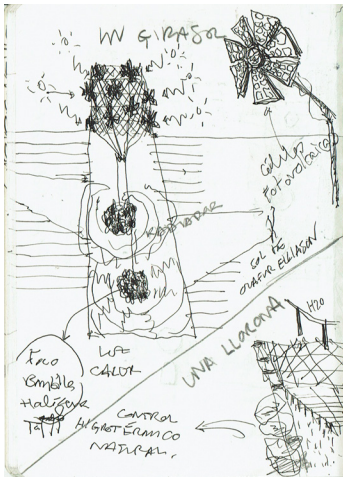 UN GIRASOL
Célula
fotovoltaica
RADIADOR
SOL DE
OLAFUR ELIASON
UNA LLORONA
H2O
Foco
Bombilla
Halógena
LUZ
CALOR
CONTROL
HIGROTÉRMICO
NATURAL.